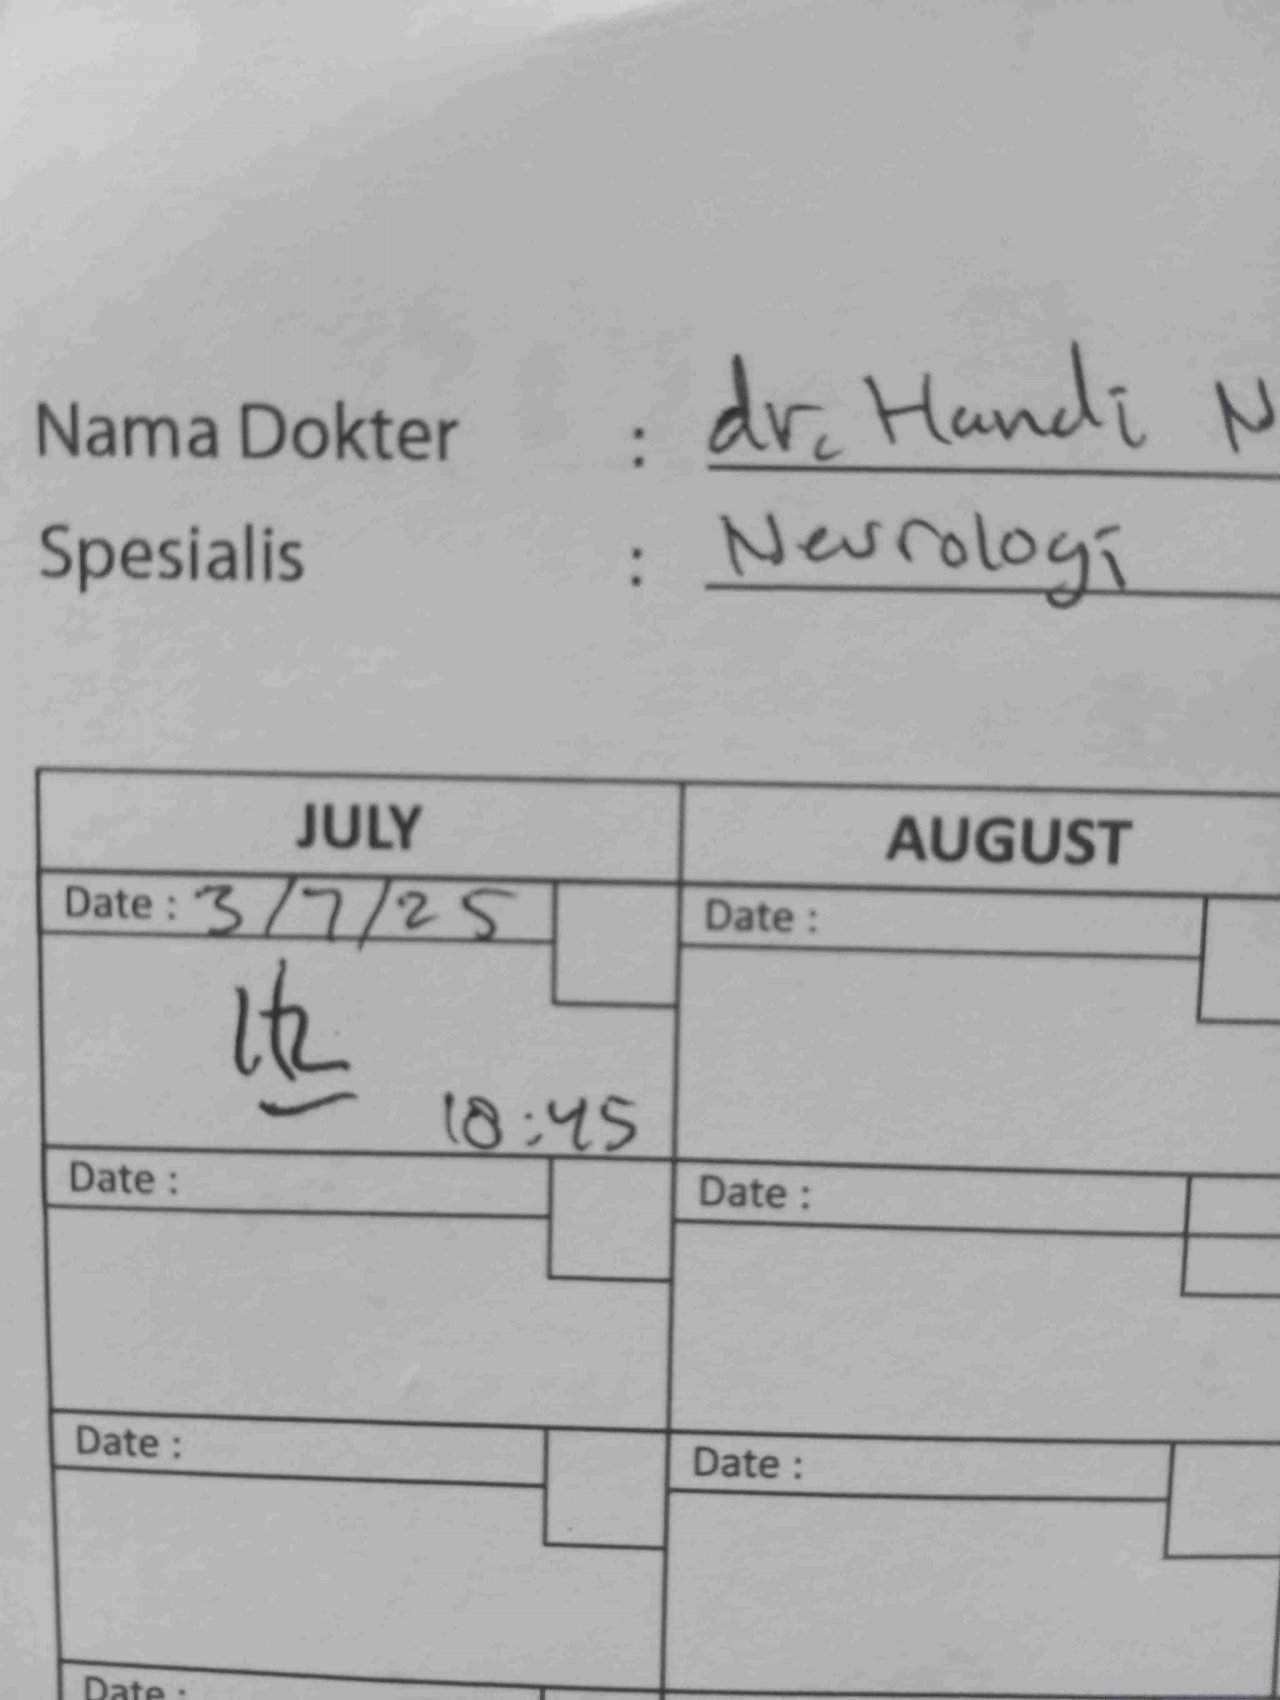 Nama Dokter : dr. Handi N
Spesialis : Neurologi
JULY AUGUST
Date : 3/7/25 Date :
18:45
Date : Date :
Date : Date :
Date :